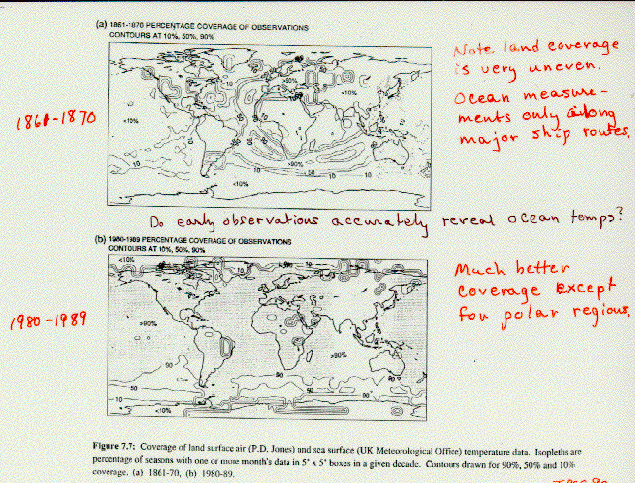 (a) 1861-1870 PERCENTAGE COVERAGE OF OBSERVATIONS
CONTOURS AT 10%, 50%, 90%
Note land coverage
is very uneven.
Ocean measure-
ments only along
major ship routes.
1861-1870
>90%
<10%
<10%
>90%
10
10
10
<10%
Do early observations accurately reveal ocean temps?
(b) 1980-1989 PERCENTAGE COVERAGE OF OBSERVATIONS
CONTOURS AT 10%, 50%, 90%
<10%
Much better
coverage except
for polar regions.
1980-1989
>90%
>90%
90
90
90
50
50
10
<10%
Figure 7.7: Coverage of land surface air (P.D. Jones) and sea surface (UK Meteorological Office) temperature data. Isopleths are
percentage of seasons with one or more month's data in 5° x 5° boxes in a given decade. Contours drawn for 90%, 50% and 10%
coverage. (a) 1861-70, (b) 1980-89.